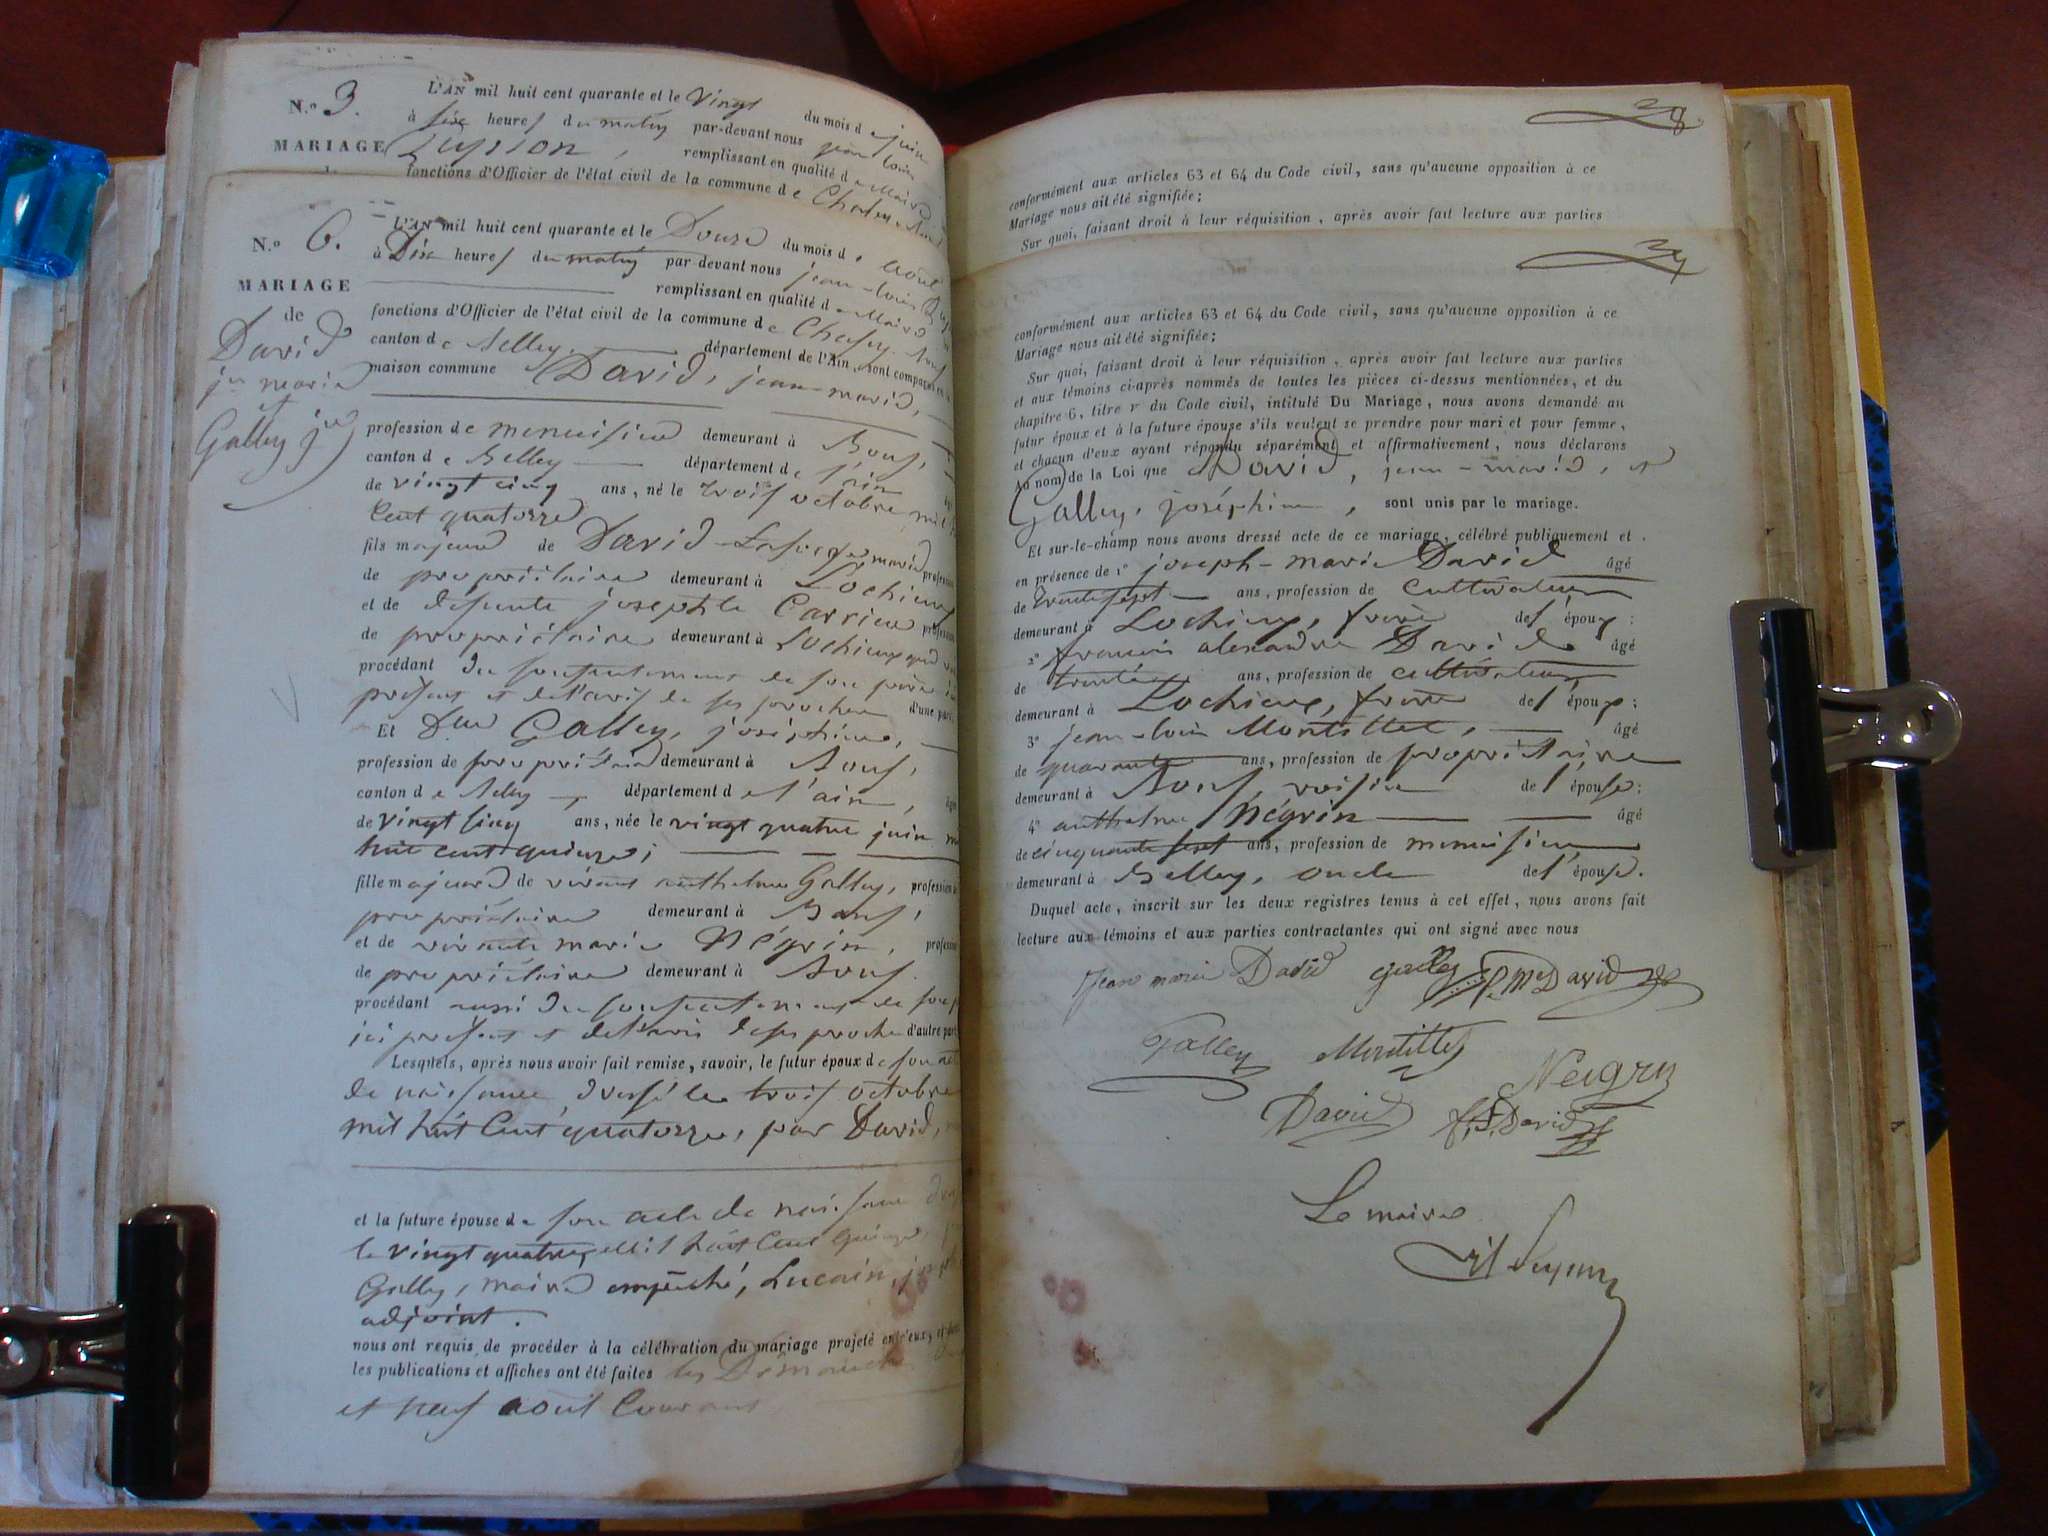 N.º 3.
MARIAGE
L'AN mil huit cent quarante et le Vingt du mois de juin
à six heures du matin par-devant nous jean louis
Peysson, remplissant en qualité de Maire
fonctions d'Officier de l'état civil de la commune de
N.º 6.
MARIAGE
de
David
jn marie
et
Galley jne
L'AN mil huit cent quarante et le Douze du mois d' août
à Dix heures du matin par-devant nous jean-louis
remplissant en qualité de Maire
fonctions d'Officier de l'état civil de la commune de
canton de Belley, département de l'Ain, sont comparus
maison commune David, jean-marie,
profession de menuisier demeurant à Bons,
canton de Belley département de l'ain
de vingt cinq ans, né le trois octobre mil
cent quatorze
fils majeur de David marie
de propriétaire demeurant à Lochieux
et de defunte josephte Carrier
de propriétaire demeurant à Lochieux
procédant du consentement de son père
présent et de l'avis de ses proches d'une part
Et Dlle Galley, joséphine,
profession de propriétaire demeurant à Bons,
canton de Belley, département de l'ain,
de vingt cinq ans, née le vingt quatre juin
huit cent quinze;
fille majeure de vivant anthelme Galley, profession
propriétaire demeurant à Bons,
et de vivante marie Négrin, profession
de propriétaire demeurant à Bons.
procédant aussi du consentement de son
ici présent et de l'avis de ses proches d'autre part
Lesquels, après nous avoir fait remise, savoir, le futur époux de son acte
de naissance, dressé le trois octobre
mil huit cent quatorze, par David,
et la future épouse de son acte de naissance
le vingt quatre, mil huit cent quinze,
Galley, maire empêché, Lucain,
adjoint.
nous ont requis de procéder à la célébration du mariage projeté entr'eux, et dont
les publications et affiches ont été faites les Dimanches
et neuf août courant
28
conformément aux articles 63 et 64 du Code civil, sans qu'aucune opposition à ce
Mariage nous ait été signifiée;
Sur quoi, faisant droit à leur réquisition, après avoir fait lecture aux parties
conformément aux articles 63 et 64 du Code civil, sans qu'aucune opposition à ce
Mariage nous ait été signifiée;
Sur quoi, faisant droit à leur réquisition, après avoir fait lecture aux parties
et aux témoins ci-après nommés de toutes les pièces ci-dessus mentionnées, et du
chapitre 6, titre v du Code civil, intitulé Du Mariage, nous avons demandé au
futur époux et à la future épouse s'ils veulent se prendre pour mari et pour femme,
et chacun d'eux ayant répondu séparément et affirmativement, nous déclarons
Au nom de la Loi que David, jean-marie, et
Galley, joséphine, sont unis par le mariage.
Et sur-le-champ nous avons dressé acte de ce mariage, célébré publiquement et
en présence de 1º joseph-marie David âgé
de trente sept ans, profession de cultivateur
demeurant à Lochieux, frère de l'époux;
2º françois alexandre David âgé
de trente ans, profession de cultivateur,
demeurant à Lochieux, frère de l'époux;
3º jean-louis Montillet, âgé
de quarante ans, profession de propriétaire
demeurant à Bons, voisin de l'épouse;
4º anthelme Négrin âgé
de cinquante sept ans, profession de menuisier
demeurant à Belley, oncle de l'épouse.
Duquel acte, inscrit sur les deux registres tenus à cet effet, nous avons fait
lecture aux témoins et aux parties contractantes qui ont signé avec nous
Jean marie David galley David
Galley Montillet Neigrin
David David
Le maire